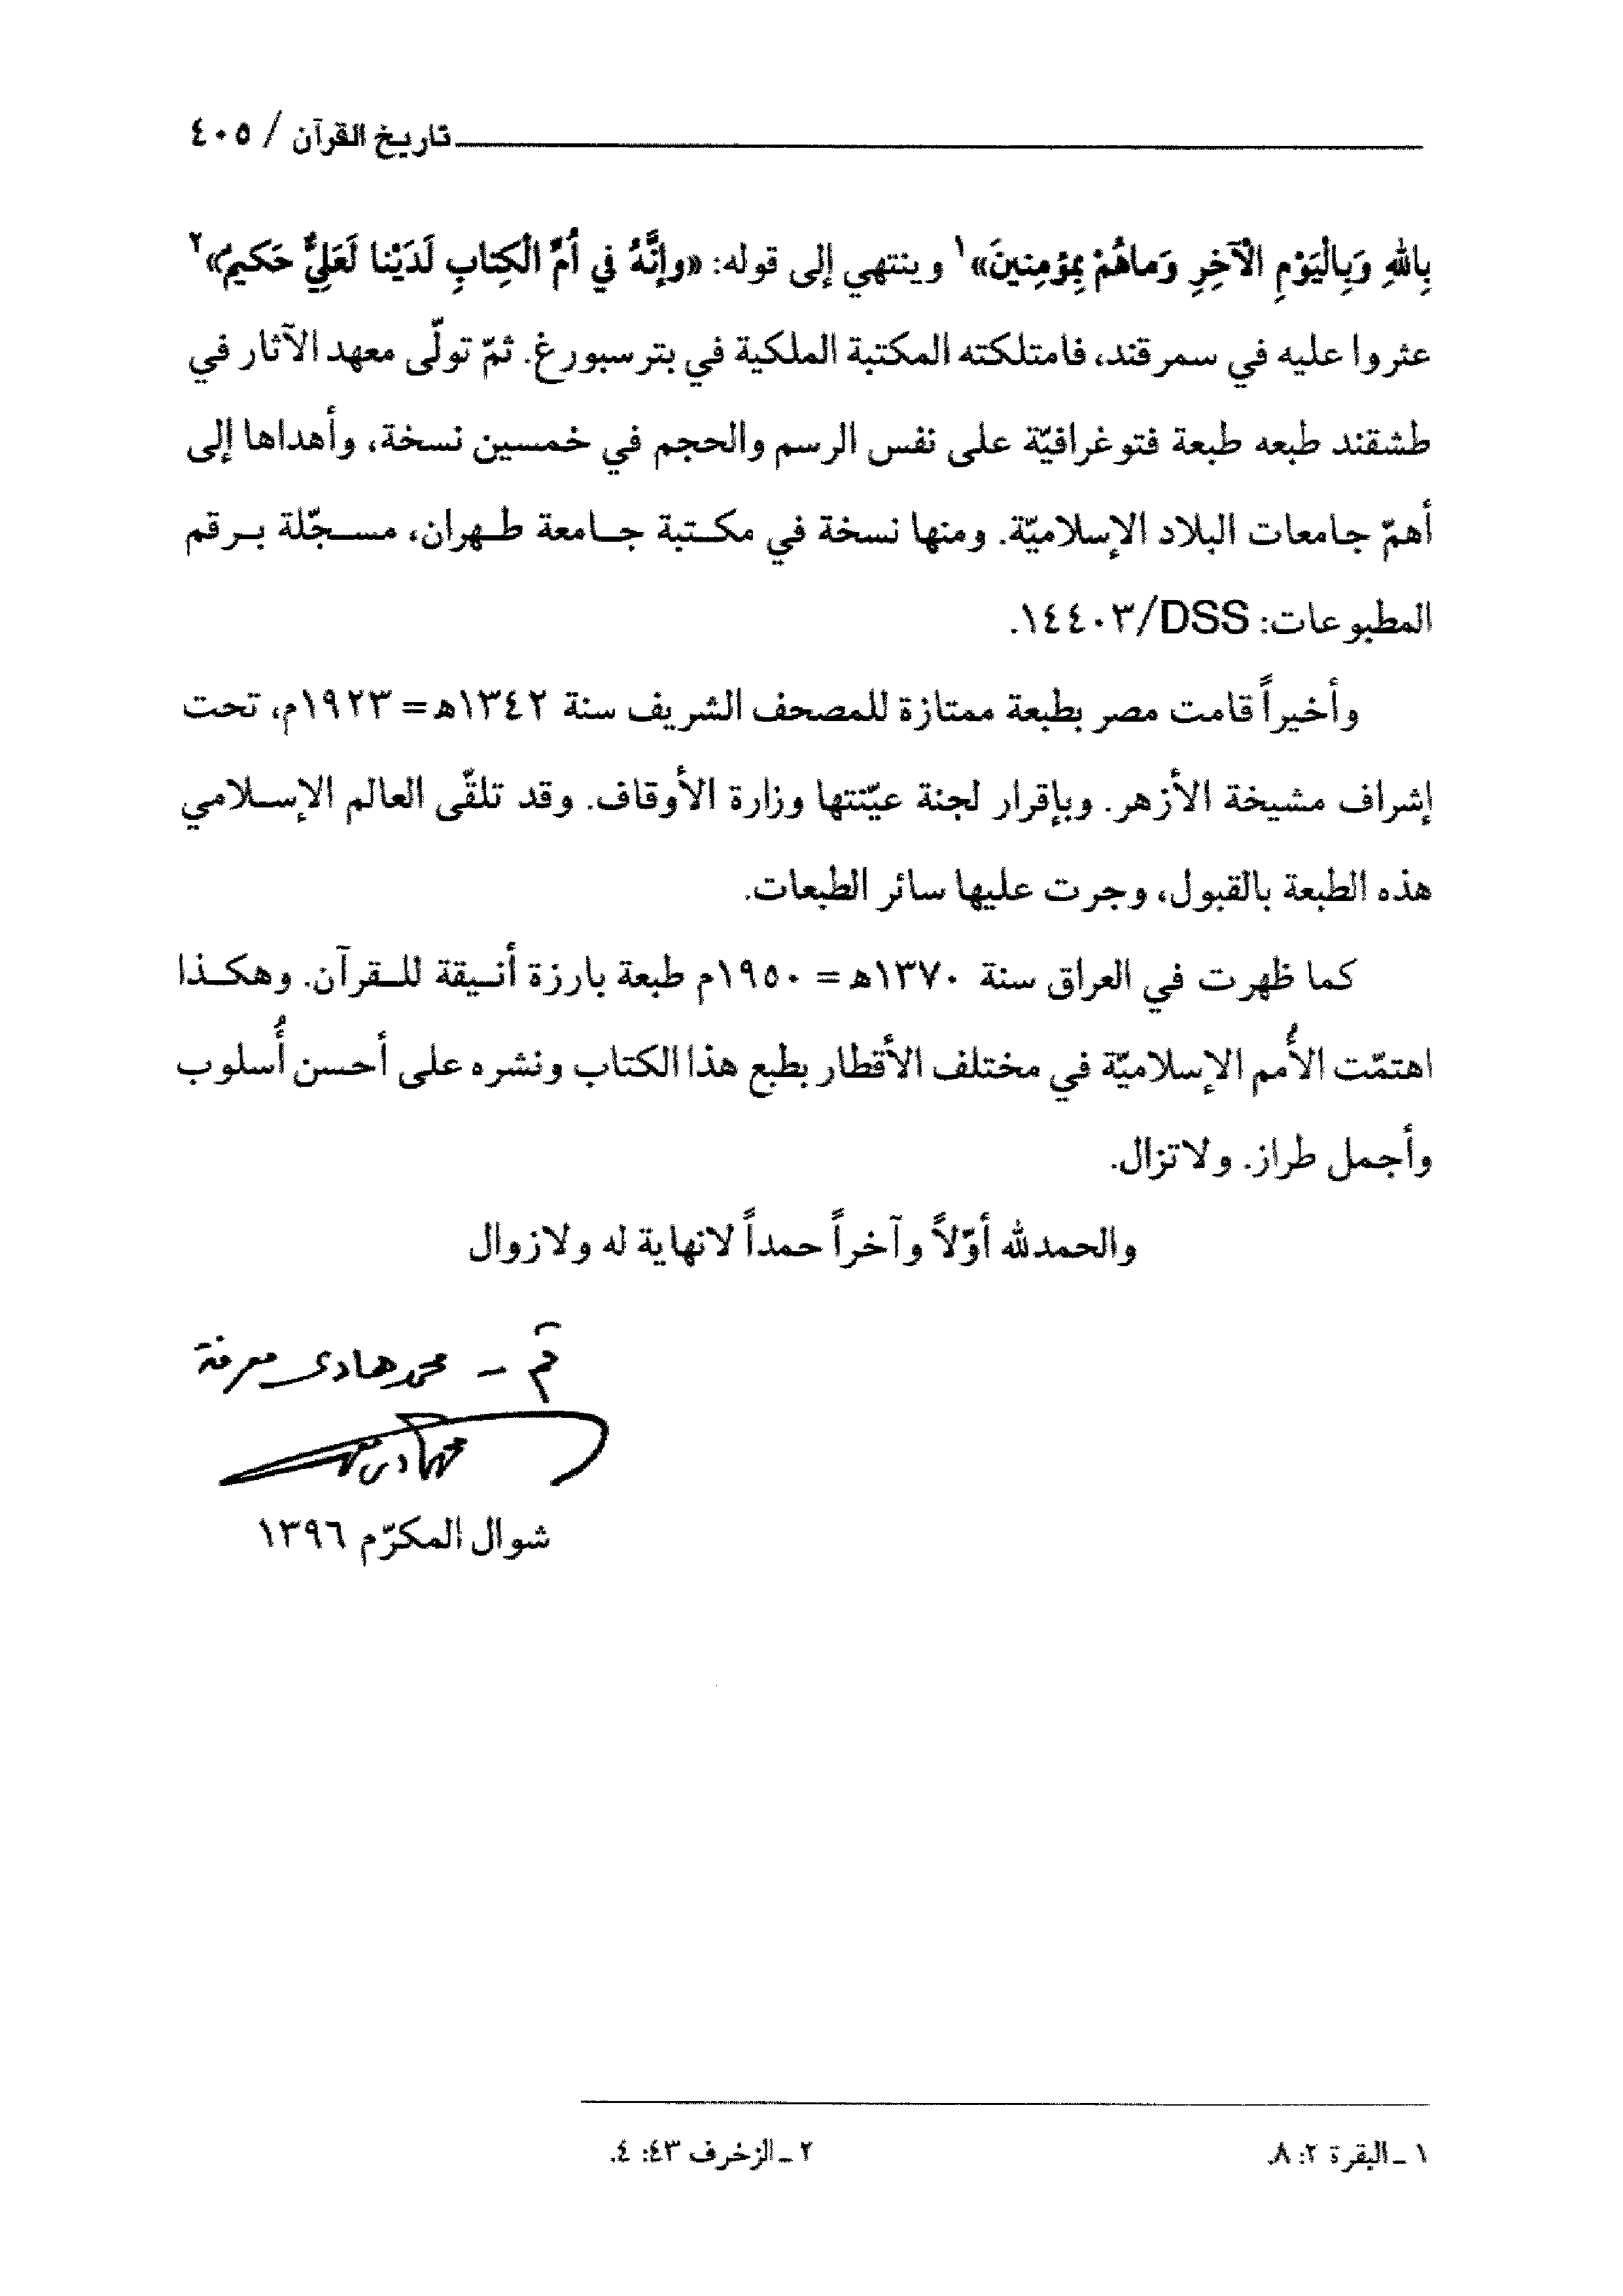 تاريخ القرآن / ٤٠٥
بِاللهِ وَبِالْيَوْمِ الْآخِرِ وَماهُمْ بِمؤمِنينَ»١ وينتهي إلى قوله: «وإنَّهُ في اُمِّ الْكِتابِ لَدَيْنا لَعَلِيٌّ حَكيمٌ»٢
عثروا عليه في سمرقند، فامتلكته المكتبة الملكية في بترسبورغ. ثمّ تولّى معهد الآثار في
طشقند طبعه طبعة فتوغرافيّة على نفس الرسم والحجم في خمسين نسخة، وأهداها إلى
أهمّ جامعات البلاد الإسلاميّة. ومنها نسخة في مكتبة جامعة طهران، مسجّلة برقم
المطبوعات: DSS/١٤٤٠٣.
وأخيراً قامت مصر بطبعة ممتازة للمصحف الشريف سنة ١٣٤٢ه‍ = ١٩٢٣م، تحت
إشراف مشيخة الأزهر. وبإقرار لجنة عيّنتها وزارة الأوقاف. وقد تلقّى العالم الإسلامي
هذه الطبعة بالقبول، وجرت عليها سائر الطبعات.
كما ظهرت في العراق سنة ١٣٧٠ه‍ = ١٩٥٠م طبعة بارزة أنيقة للقرآن. وهكذا
اهتمّت الأُمم الإسلاميّة في مختلف الأقطار بطبع هذا الكتاب ونشره على أحسن أُسلوب
وأجمل طراز. ولاتزال.
والحمدلله أوّلاً وآخراً حمداً لانهاية له ولازوال
قم - محمد هادى معرفة
شوال المكرّم ١٣٩٦
١ ـ البقرة ٢: ٨.
٢ ـ الزخرف ٤٣: ٤.